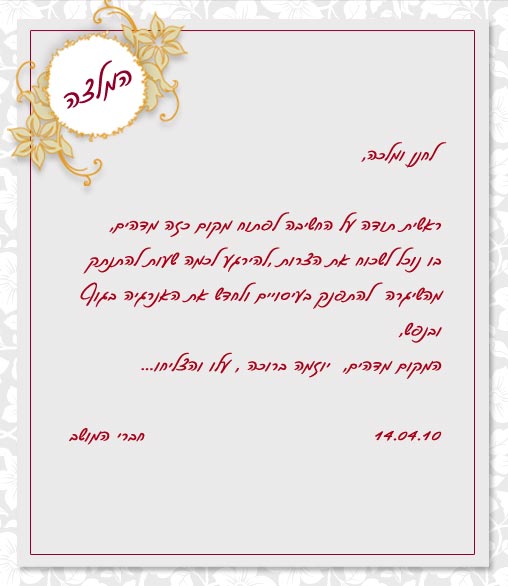 המלצה
לחנן ומלכה,
ראשית תודה על החשיבה לפתוח מקום כזה מדהים,
בו נוכל לשכוח את הצרות ,להירגע לכמה שעות להתנתק
מהשיגרה להתפנק בעיסויים ולחדש את האנרגיה בגוף
ובנפש,
המקום מדהים, יוזמה ברוכה , עלו והצליחו...
14.04.10 חברי המושב